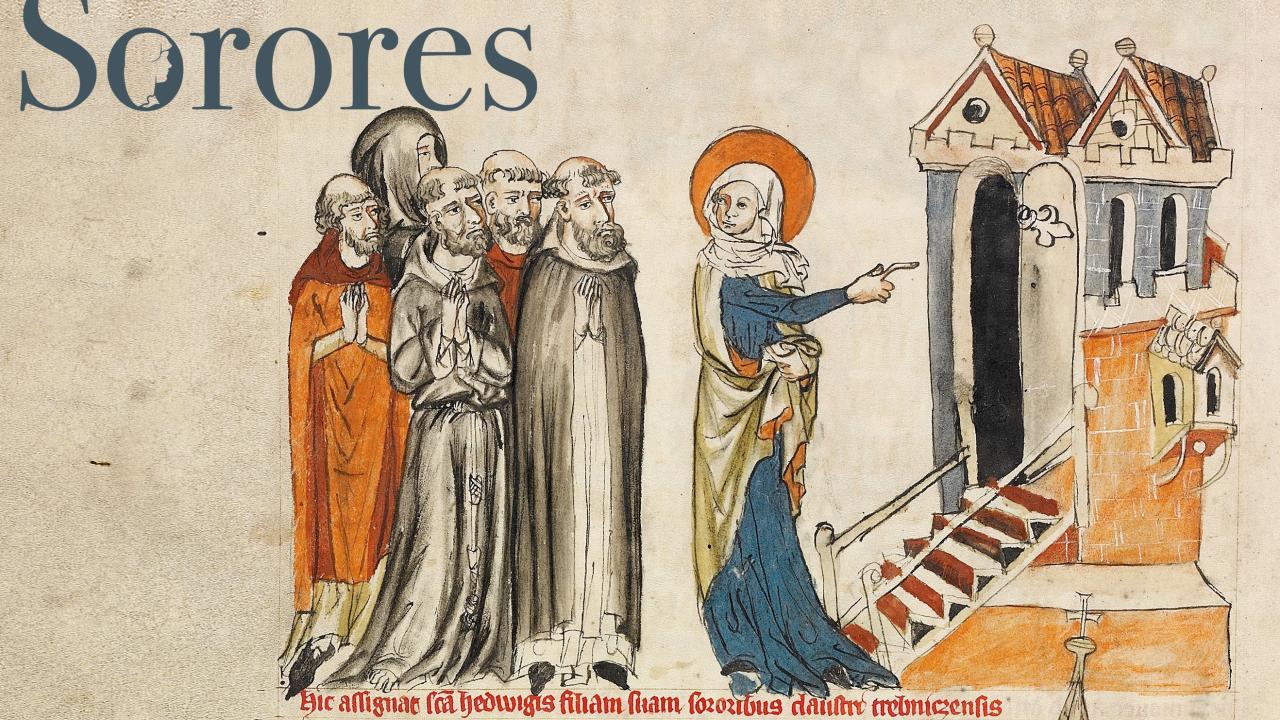 Sorores
Hic assignat scā hedwigis filiam suam sororibus claustri trebniczensis